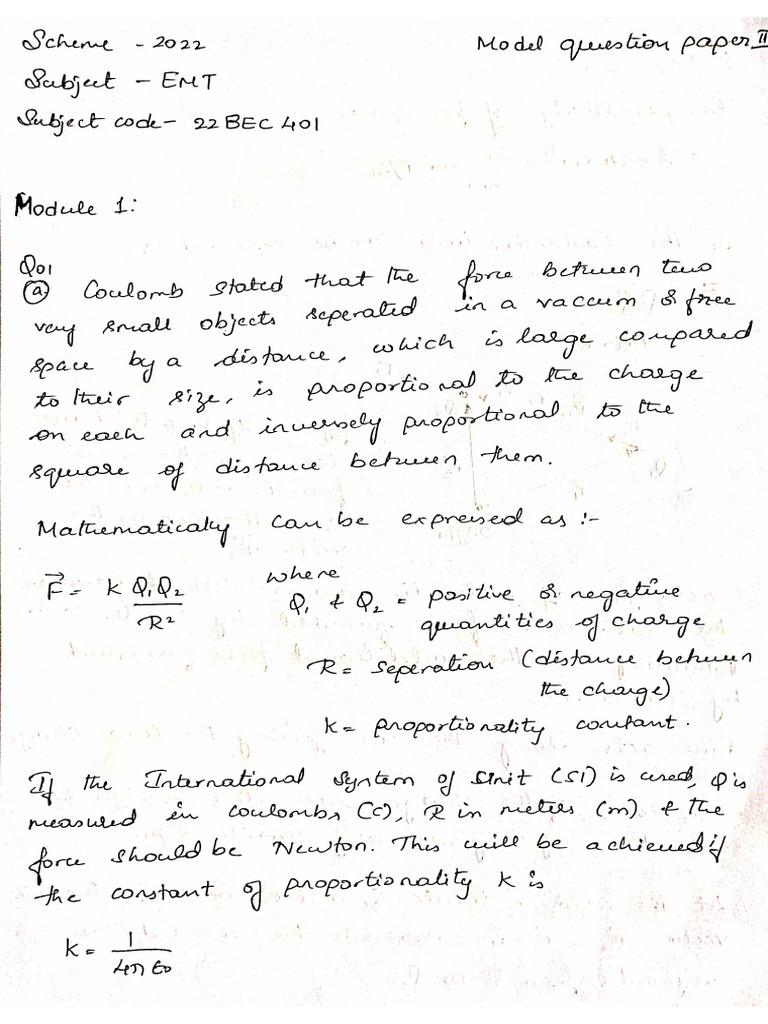 Scheme - 2022
Model question paper II
Subject - EMT
Subject code - 22BEC401
Module 1:
Q01
(a) Coulomb stated that the force between two
very small objects seperated in a vaccum or free
space by a distance, which is large compared
to their size, is proportional to the charge
on each and inversely proportional to the
square of distance between them.
Mathematically can be expressed as :-
F⃗ = k Q₁Q₂ / R²
where
Q₁ & Q₂ = positive or negative
quantities of charge
R = seperation (distance between
the charge)
k = proportionality constant.
If the International System of Unit (SI) is used, Q is
measured in coulombs (C), R in meters (m) & the
force should be Newton. This will be achieved if
the constant of proportionality k is
k = 1 / 4π ε₀